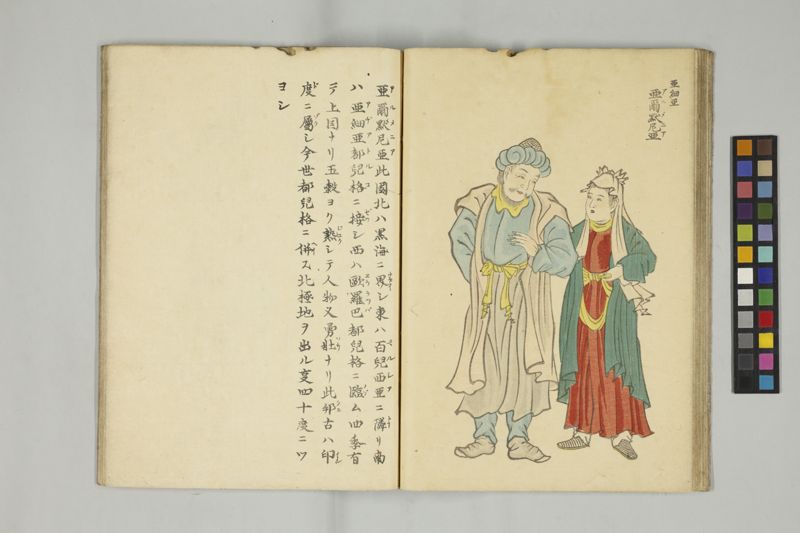 亜細亜
亜爾黙尼亜
亜爾黙尼亜此國北ハ黒海ニ界シ東ハ百児西亜ニ隣リ南
ハ亜細亜都児格ニ接シ西ハ歐羅巴都児格ニ臨ム四季有
テ上国ナリ五穀ヨク熟シテ人物又勇壮ナリ此邦古ハ印
度ニ屬シ今世都児格ニ併ス北極地ヲ出ル事四十度ニツ
ヨシ